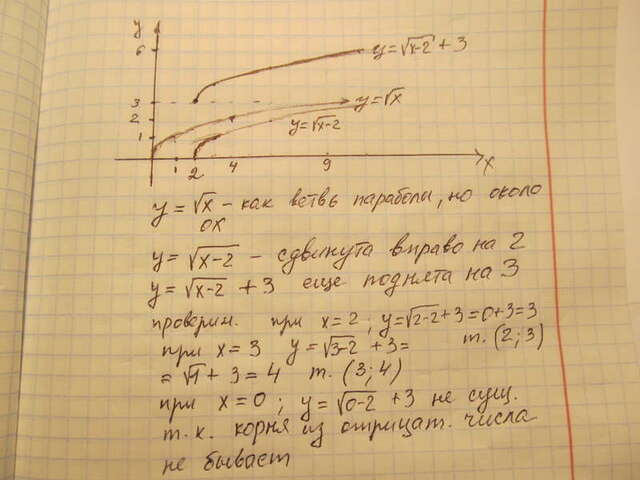 y
6
y=√x-2 + 3
3
y=√x
2
y=√x-2
1
1 2 4 9 x
y = √x - как ветвь параболы, но около
ОХ
y = √x-2 - сдвинута вправо на 2
y = √x-2 + 3 еще поднята на 3
проверим. при x=2; y=√2-2+3=0+3=3
при x=3 y=√3-2 +3= т. (2; 3)
= √1 + 3 = 4 т. (3; 4)
при x=0; y=√0-2 +3 не сущ.
т.к. корня из отрицат. числа
не бывает